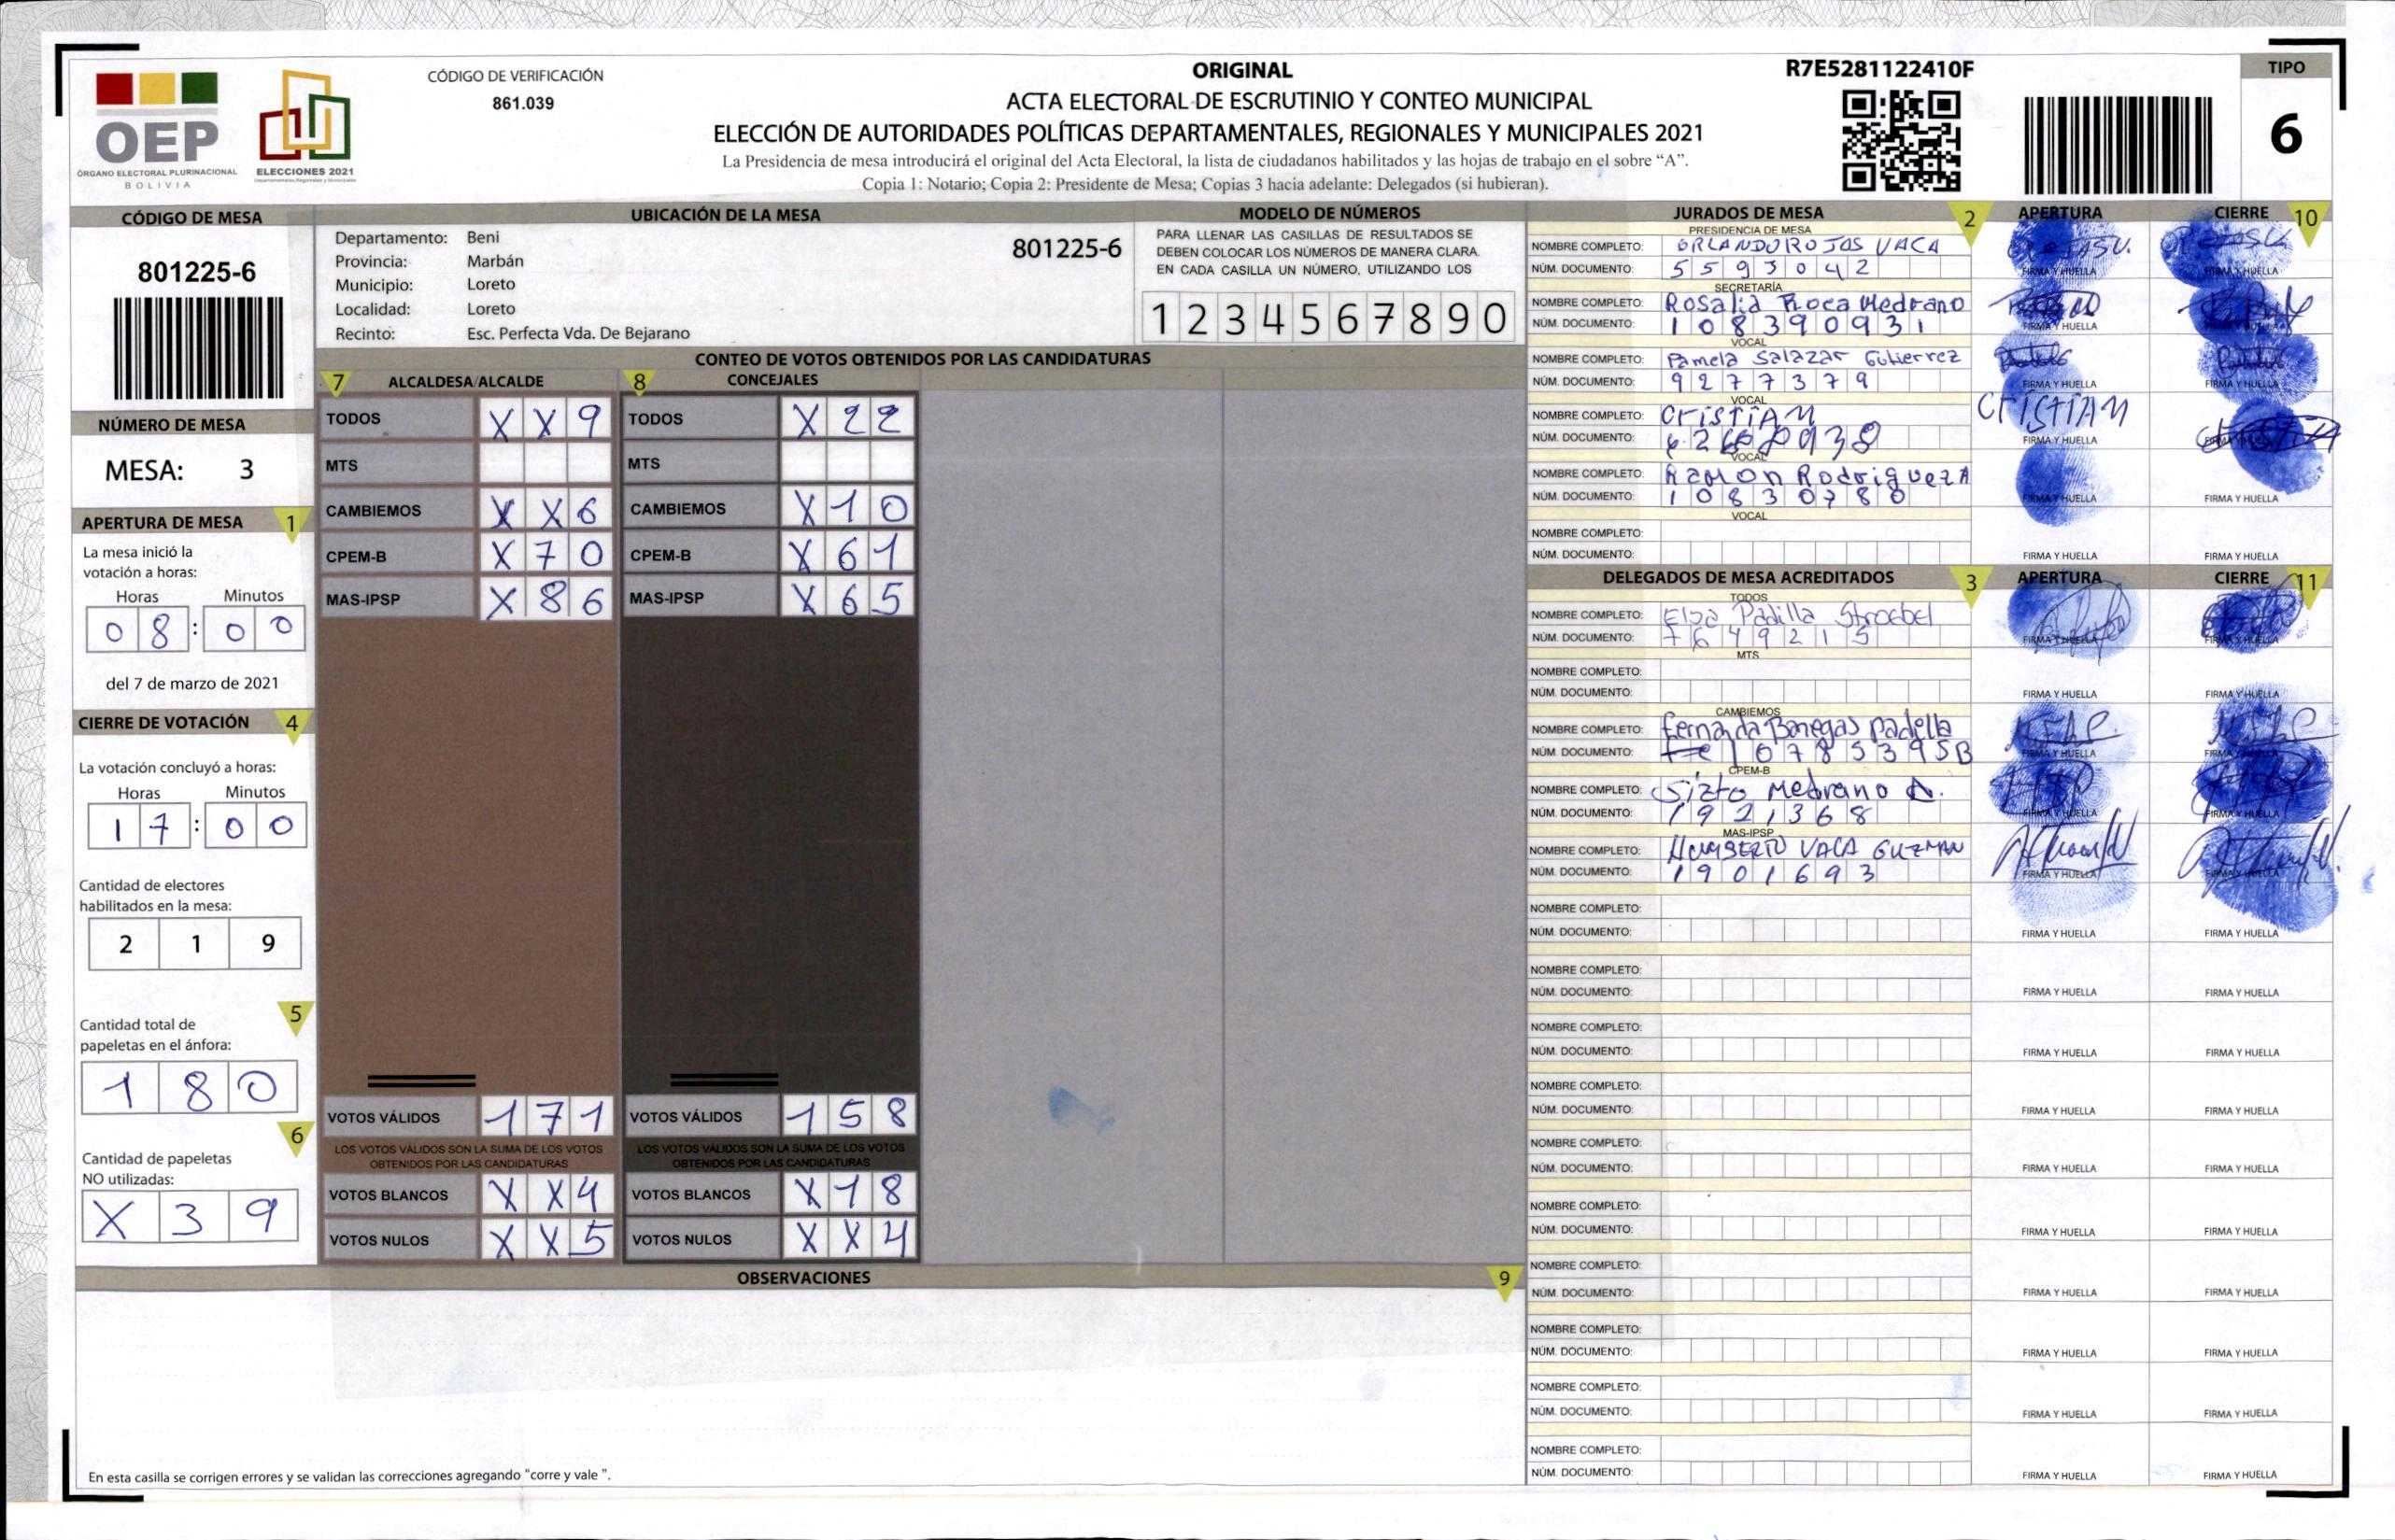 OEP
ÓRGANO ELECTORAL PLURINACIONAL
BOLIVIA
ELECCIONES 2021
CÓDIGO DE VERIFICACIÓN
861.039
ORIGINAL
ACTA ELECTORAL DE ESCRUTINIO Y CONTEO MUNICIPAL
ELECCIÓN DE AUTORIDADES POLÍTICAS DEPARTAMENTALES, REGIONALES Y MUNICIPALES 2021
La Presidencia de mesa introducirá el original del Acta Electoral, la lista de ciudadanos habilitados y las hojas de trabajo en el sobre “A”.
Copia 1: Notario; Copia 2: Presidente de Mesa; Copias 3 hacia adelante: Delegados (si hubieran).
R7E5281122410F
TIPO
6
CÓDIGO DE MESA
801225-6
NÚMERO DE MESA
MESA: 3
APERTURA DE MESA 1
La mesa inició la
votación a horas:
Horas Minutos
08:00
del 7 de marzo de 2021
CIERRE DE VOTACIÓN 4
La votación concluyó a horas:
Horas Minutos
17:00
Cantidad de electores
habilitados en la mesa:
2 1 9
5
Cantidad total de
papeletas en el ánfora:
1 8 0
6
Cantidad de papeletas
NO utilizadas:
X 3 9
UBICACIÓN DE LA MESA
Departamento: Beni
Provincia: Marbán
Municipio: Loreto
Localidad: Loreto
Recinto: Esc. Perfecta Vda. De Bejarano
801225-6
MODELO DE NÚMEROS
PARA LLENAR LAS CASILLAS DE RESULTADOS SE
DEBEN COLOCAR LOS NÚMEROS DE MANERA CLARA.
EN CADA CASILLA UN NÚMERO, UTILIZANDO LOS
1 2 3 4 5 6 7 8 9 0
CONTEO DE VOTOS OBTENIDOS POR LAS CANDIDATURAS
7 ALCALDESA/ALCALDE
TODOS X X 9
MTS
CAMBIEMOS X X 6
CPEM-B X 7 0
MAS-IPSP X 8 6
VOTOS VÁLIDOS 1 7 1
LOS VOTOS VÁLIDOS SON LA SUMA DE LOS VOTOS
OBTENIDOS POR LAS CANDIDATURAS
VOTOS BLANCOS X X 4
VOTOS NULOS X X 5
8 CONCEJALES
TODOS X 2 2
MTS
CAMBIEMOS X 1 0
CPEM-B X 6 1
MAS-IPSP X 6 5
VOTOS VÁLIDOS 1 5 8
LOS VOTOS VÁLIDOS SON LA SUMA DE LOS VOTOS
OBTENIDOS POR LAS CANDIDATURAS
VOTOS BLANCOS X 1 8
VOTOS NULOS X X 4
OBSERVACIONES 9
En esta casilla se corrigen errores y se validan las correcciones agregando "corre y vale ".
JURADOS DE MESA 2 APERTURA CIERRE 10
PRESIDENCIA DE MESA
NOMBRE COMPLETO: ORLANDO ROJAS VACA
NÚM. DOCUMENTO: 5593042 FIRMA Y HUELLA FIRMA Y HUELLA
SECRETARÍA
NOMBRE COMPLETO: Rosalia Roca Medrano
NÚM. DOCUMENTO: 108390931 FIRMA Y HUELLA
VOCAL
NOMBRE COMPLETO: Pamela Salazar Gutierrez
NÚM. DOCUMENTO: 9277379 FIRMA Y HUELLA FIRMA Y HUELLA
VOCAL
NOMBRE COMPLETO: CrISTIAN CrISTIAN
NÚM. DOCUMENTO: FIRMA Y HUELLA
VOCAL
NOMBRE COMPLETO: Ramon Rodriguez A
NÚM. DOCUMENTO: 10830780 FIRMA Y HUELLA FIRMA Y HUELLA
VOCAL
NOMBRE COMPLETO:
NÚM. DOCUMENTO: FIRMA Y HUELLA FIRMA Y HUELLA
DELEGADOS DE MESA ACREDITADOS 3 APERTURA CIERRE 11
TODOS
NOMBRE COMPLETO: Elsa Padilla Stroebel
NÚM. DOCUMENTO: 7649215 FIRMA Y HUELLA FIRMA Y HUELLA
MTS
NOMBRE COMPLETO:
NÚM. DOCUMENTO: FIRMA Y HUELLA FIRMA Y HUELLA
CAMBIEMOS
NOMBRE COMPLETO: Fernanda Banegas Padilla
NÚM. DOCUMENTO: 10785395B FIRMA Y HUELLA FIRMA Y HUELLA
CPEM-B
NOMBRE COMPLETO: Sixto Medrano A.
NÚM. DOCUMENTO: 1921368 FIRMA Y HUELLA FIRMA Y HUELLA
MAS-IPSP
NOMBRE COMPLETO: HUMBERTO VACA GUZMAN
NÚM. DOCUMENTO: 1901693 FIRMA Y HUELLA FIRMA Y HUELLA
NOMBRE COMPLETO:
NÚM. DOCUMENTO: FIRMA Y HUELLA FIRMA Y HUELLA
NOMBRE COMPLETO:
NÚM. DOCUMENTO: FIRMA Y HUELLA FIRMA Y HUELLA
NOMBRE COMPLETO:
NÚM. DOCUMENTO: FIRMA Y HUELLA FIRMA Y HUELLA
NOMBRE COMPLETO:
NÚM. DOCUMENTO: FIRMA Y HUELLA FIRMA Y HUELLA
NOMBRE COMPLETO:
NÚM. DOCUMENTO: FIRMA Y HUELLA FIRMA Y HUELLA
NOMBRE COMPLETO:
NÚM. DOCUMENTO: FIRMA Y HUELLA FIRMA Y HUELLA
NOMBRE COMPLETO:
NÚM. DOCUMENTO: FIRMA Y HUELLA FIRMA Y HUELLA
NOMBRE COMPLETO:
NÚM. DOCUMENTO: FIRMA Y HUELLA FIRMA Y HUELLA
NOMBRE COMPLETO:
NÚM. DOCUMENTO: FIRMA Y HUELLA FIRMA Y HUELLA
NOMBRE COMPLETO:
NÚM. DOCUMENTO: FIRMA Y HUELLA FIRMA Y HUELLA